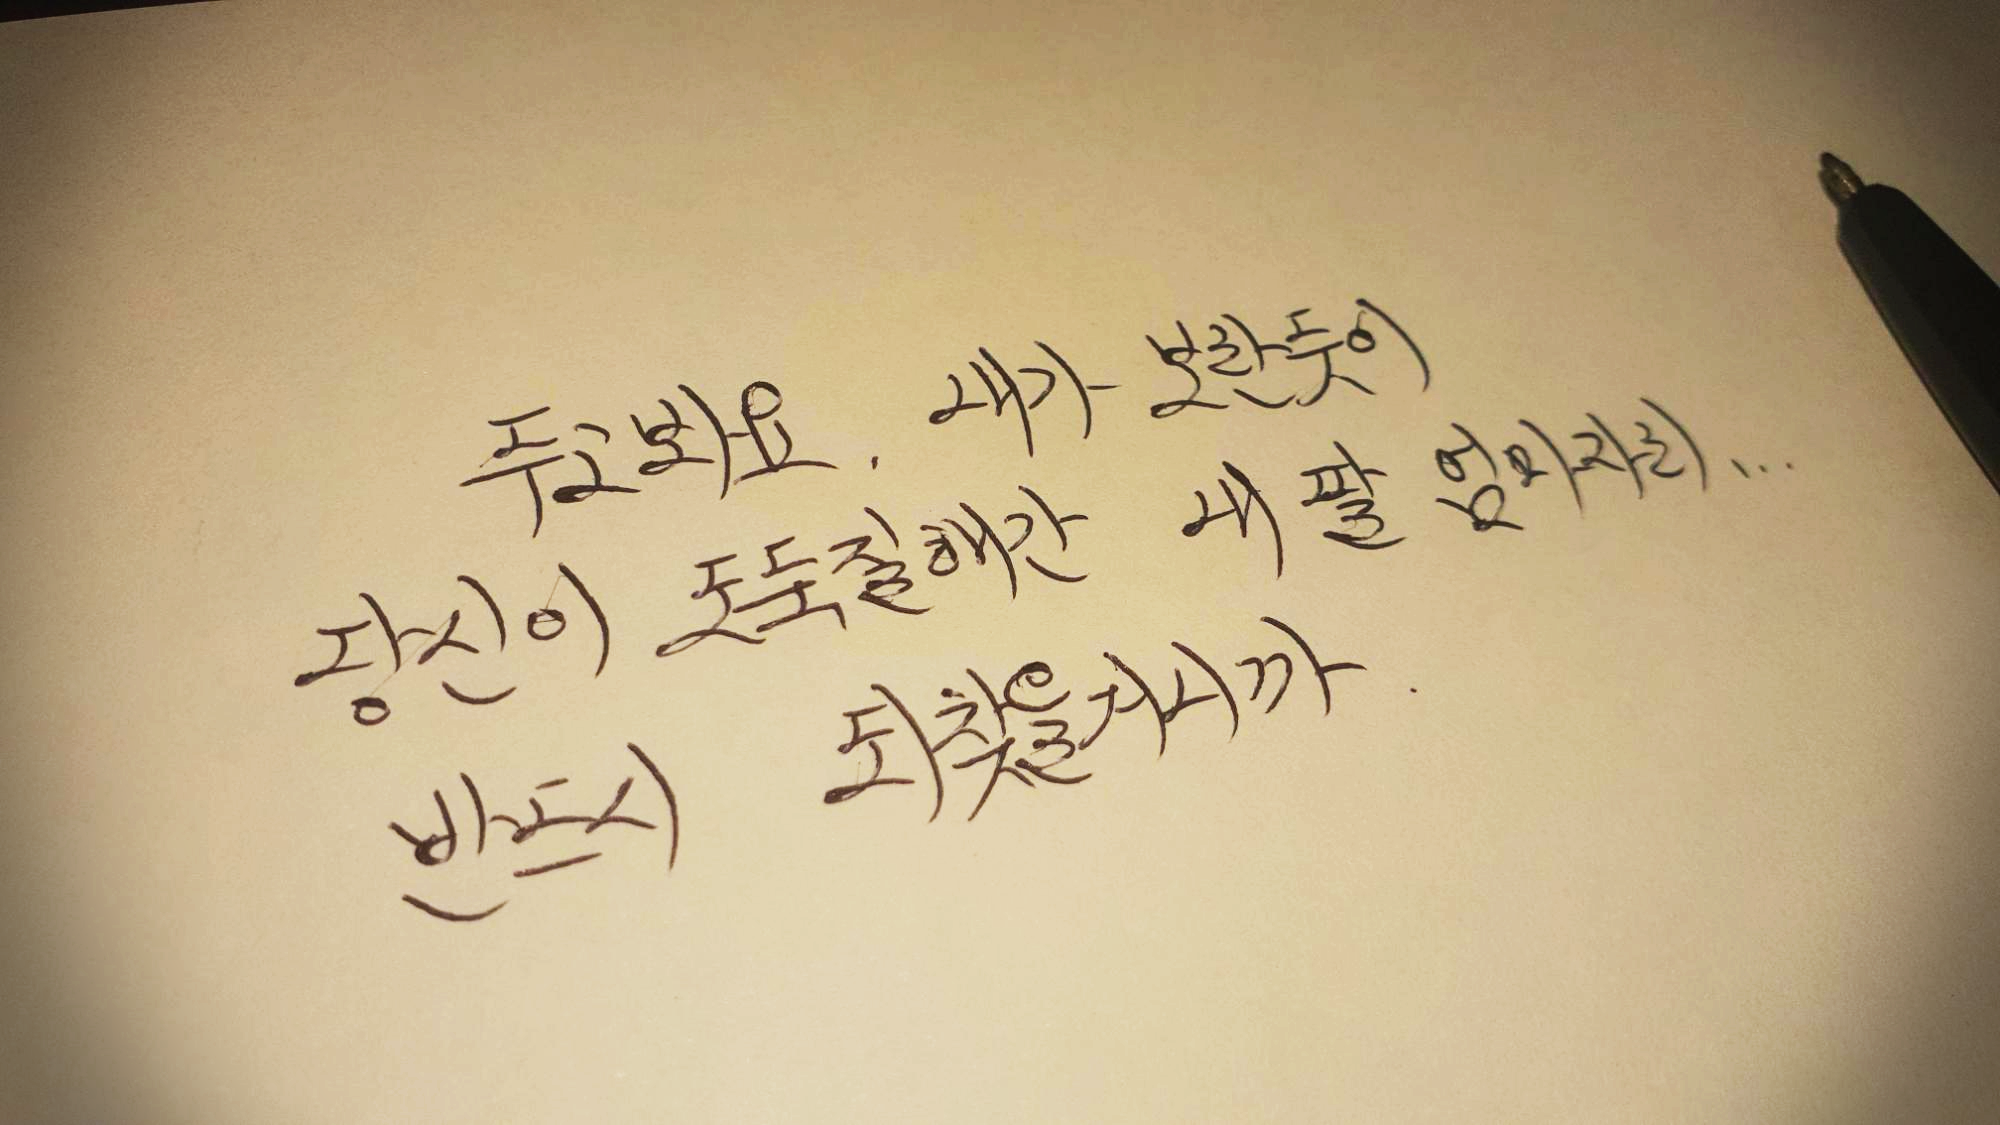 두고봐요. 내가 보란듯이
당신이 도둑질해간 내 팔 엄마자리...
반드시 되찾을거니까.